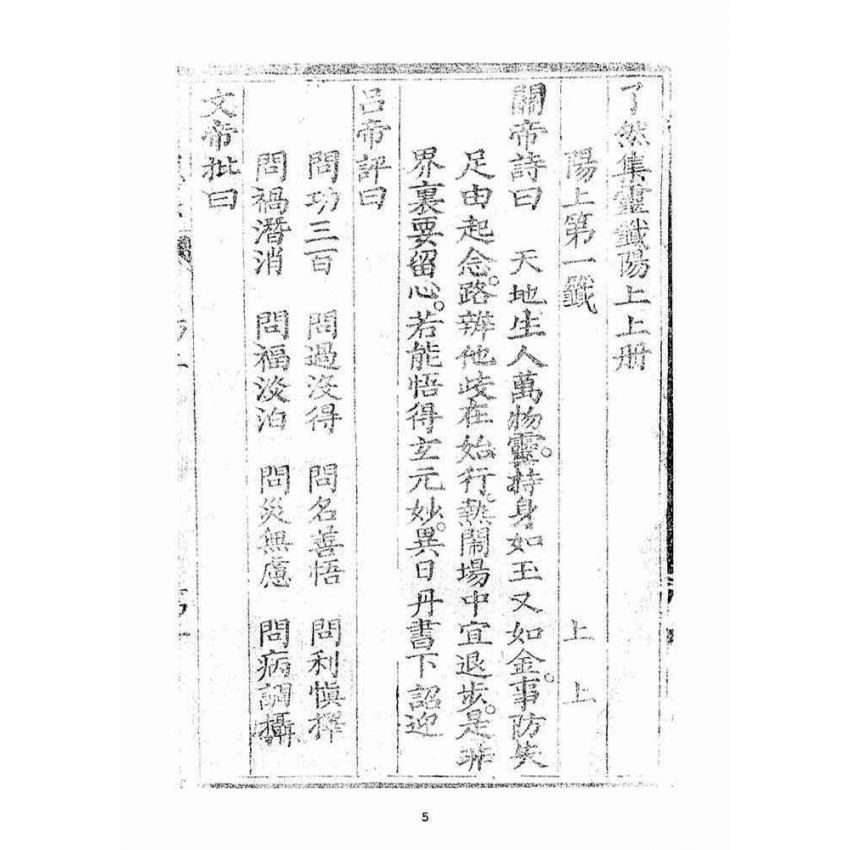 了然集靈籤陽上上册
陽上第一籤 上上
關帝詩曰 天地生人萬物靈。持身如玉又如金。事防失
足由起念。路辦他歧在始行。熱鬧場中宜退步。是非
界裏要留心。若能悟得玄元妙。異日丹書下詔迎
呂帝評曰
問功三百 問過沒得 問名善悟 問利慎擇
問禍潛消 問福淡泊 問災無慮 問病調攝
文帝批曰
5